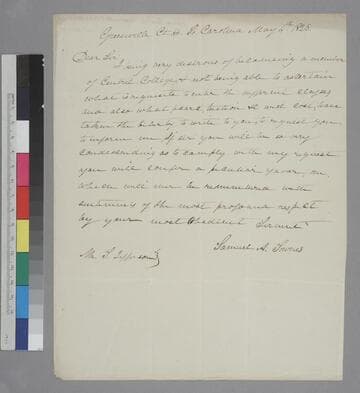 Greenville Ct. H. S. Carolina May
Dear Sir
Being very desirous of becoming a member
of Central College & not being able to ascertain
what is requisite to enter the several classes
and also what years tuition &c will cost, have
taken the liberty to write to you, to request you
to inform me. If Sir you will be so very
condescending as to comply with my request
you will confer a peculiar favor, on
which will ever be remembered with
sentiments of the most profound respect
by your most Obedient Servant
Samuel A. Townes
Mr. T. Jefferson